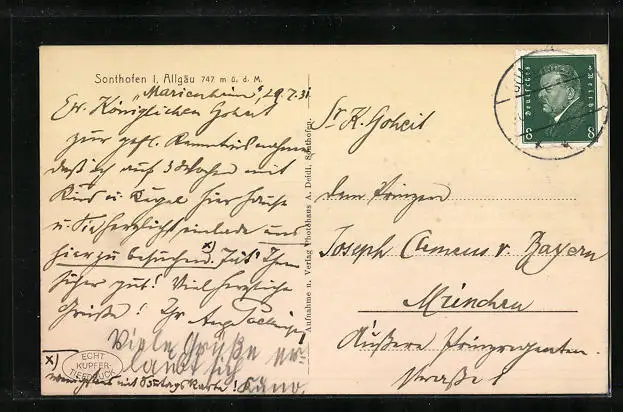 Sonthofen i. Allgäu 747 m ü. d. M.
"Marienheim", 29.7.31
Ew. Königlichen Hoheit
zur gefl. Kenntnisnahme
daß ich auf 3 Wochen mit
Kind u. Kegel hier hause
u. Sie herzlichst einlade uns
hier zu besuchen. x)
sicher gut! Viel herzliche
Grüße! Ihr
Viele Grüße er-
laubt sich
Kuno.
x)
ECHT
KUPFER-
TIEFDRUCK
wenigstens mit Sonntagskarte!
Aufnahme u. Verlag Photohaus A. Deidl, Sonthofen.
Deutsches Reich
8 8
Sr. K. Hoheit
dem Prinzen
Joseph Clemens v. Bayern
München
Äußere Prinzregenten-
straße